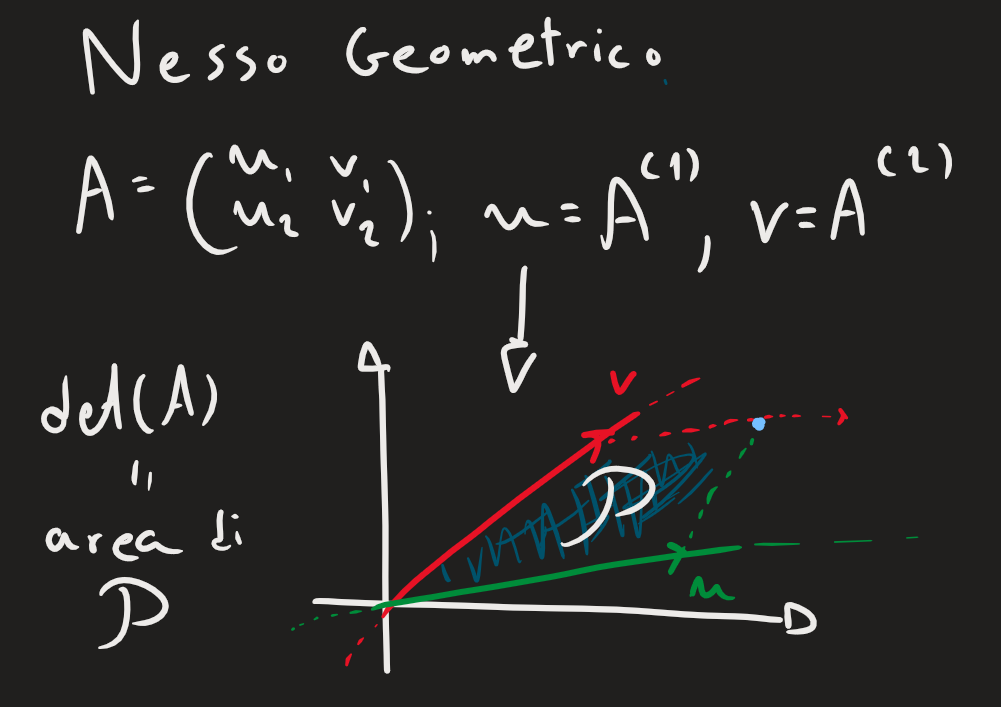 Nesso Geometrico.
A = (u₁ v₁
u₂ v₂); u = A⁽¹⁾, v = A⁽²⁾
v
det(A)
"
P
area di
u
P